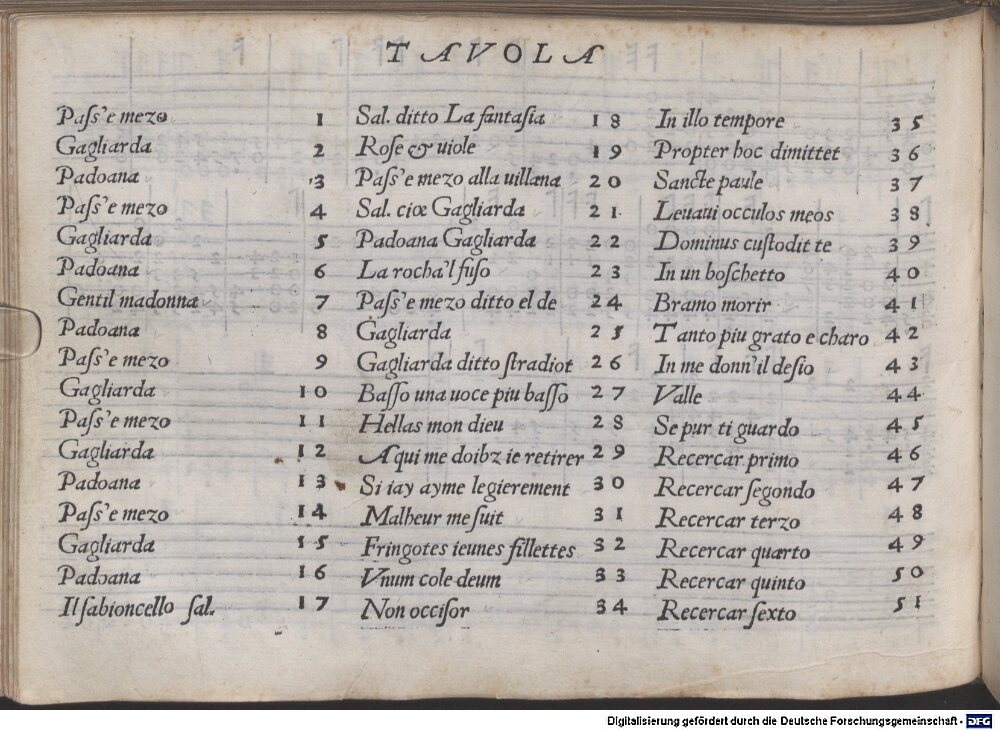 TAVOLA
Paſs'e mezo 1
Gagliarda 2
Padoana 3
Paſs'e mezo 4
Gagliarda 5
Padoana 6
Gentil madonna 7
Padoana 8
Paſs'e mezo 9
Gagliarda 10
Paſs'e mezo 11
Gagliarda 12
Padoana 13
Paſs'e mezo 14
Gagliarda 15
Padoana 16
Il ſabioncello ſal. 17
Sal. ditto La fantaſia 18
Roſe & uiole 19
Paſs'e mezo alla uillana 20
Sal. cioe Gagliarda 21
Padoana Gagliarda 22
La rocha'l fuſo 23
Paſs'e mezo ditto el de 24
Gagliarda 25
Gagliarda ditto ſtradiot 26
Baſſo una uoce piu baſſo 27
Hellas mon dieu 28
A qui me doibz ie retirer 29
Si iay ayme legierement 30
Malheur me ſuit 31
Fringotes ieunes fillettes 32
Vnum cole deum 33
Non occiſor 34
In illo tempore 35
Propter hoc dimittet 36
Sancte paule 37
Leuaui occulos meos 38
Dominus cuſtodit te 39
In un boſchetto 40
Bramo morir 41
Tanto piu grato e charo 42
In me donn'il deſio 43
Valle 44
Se pur ti guardo 45
Recercar primo 46
Recercar ſegondo 47
Recercar terzo 48
Recercar quarto 49
Recercar quinto 50
Recercar ſexto 51
Digitalisierung gefördert durch die Deutsche Forschungsgemeinschaft - DFG